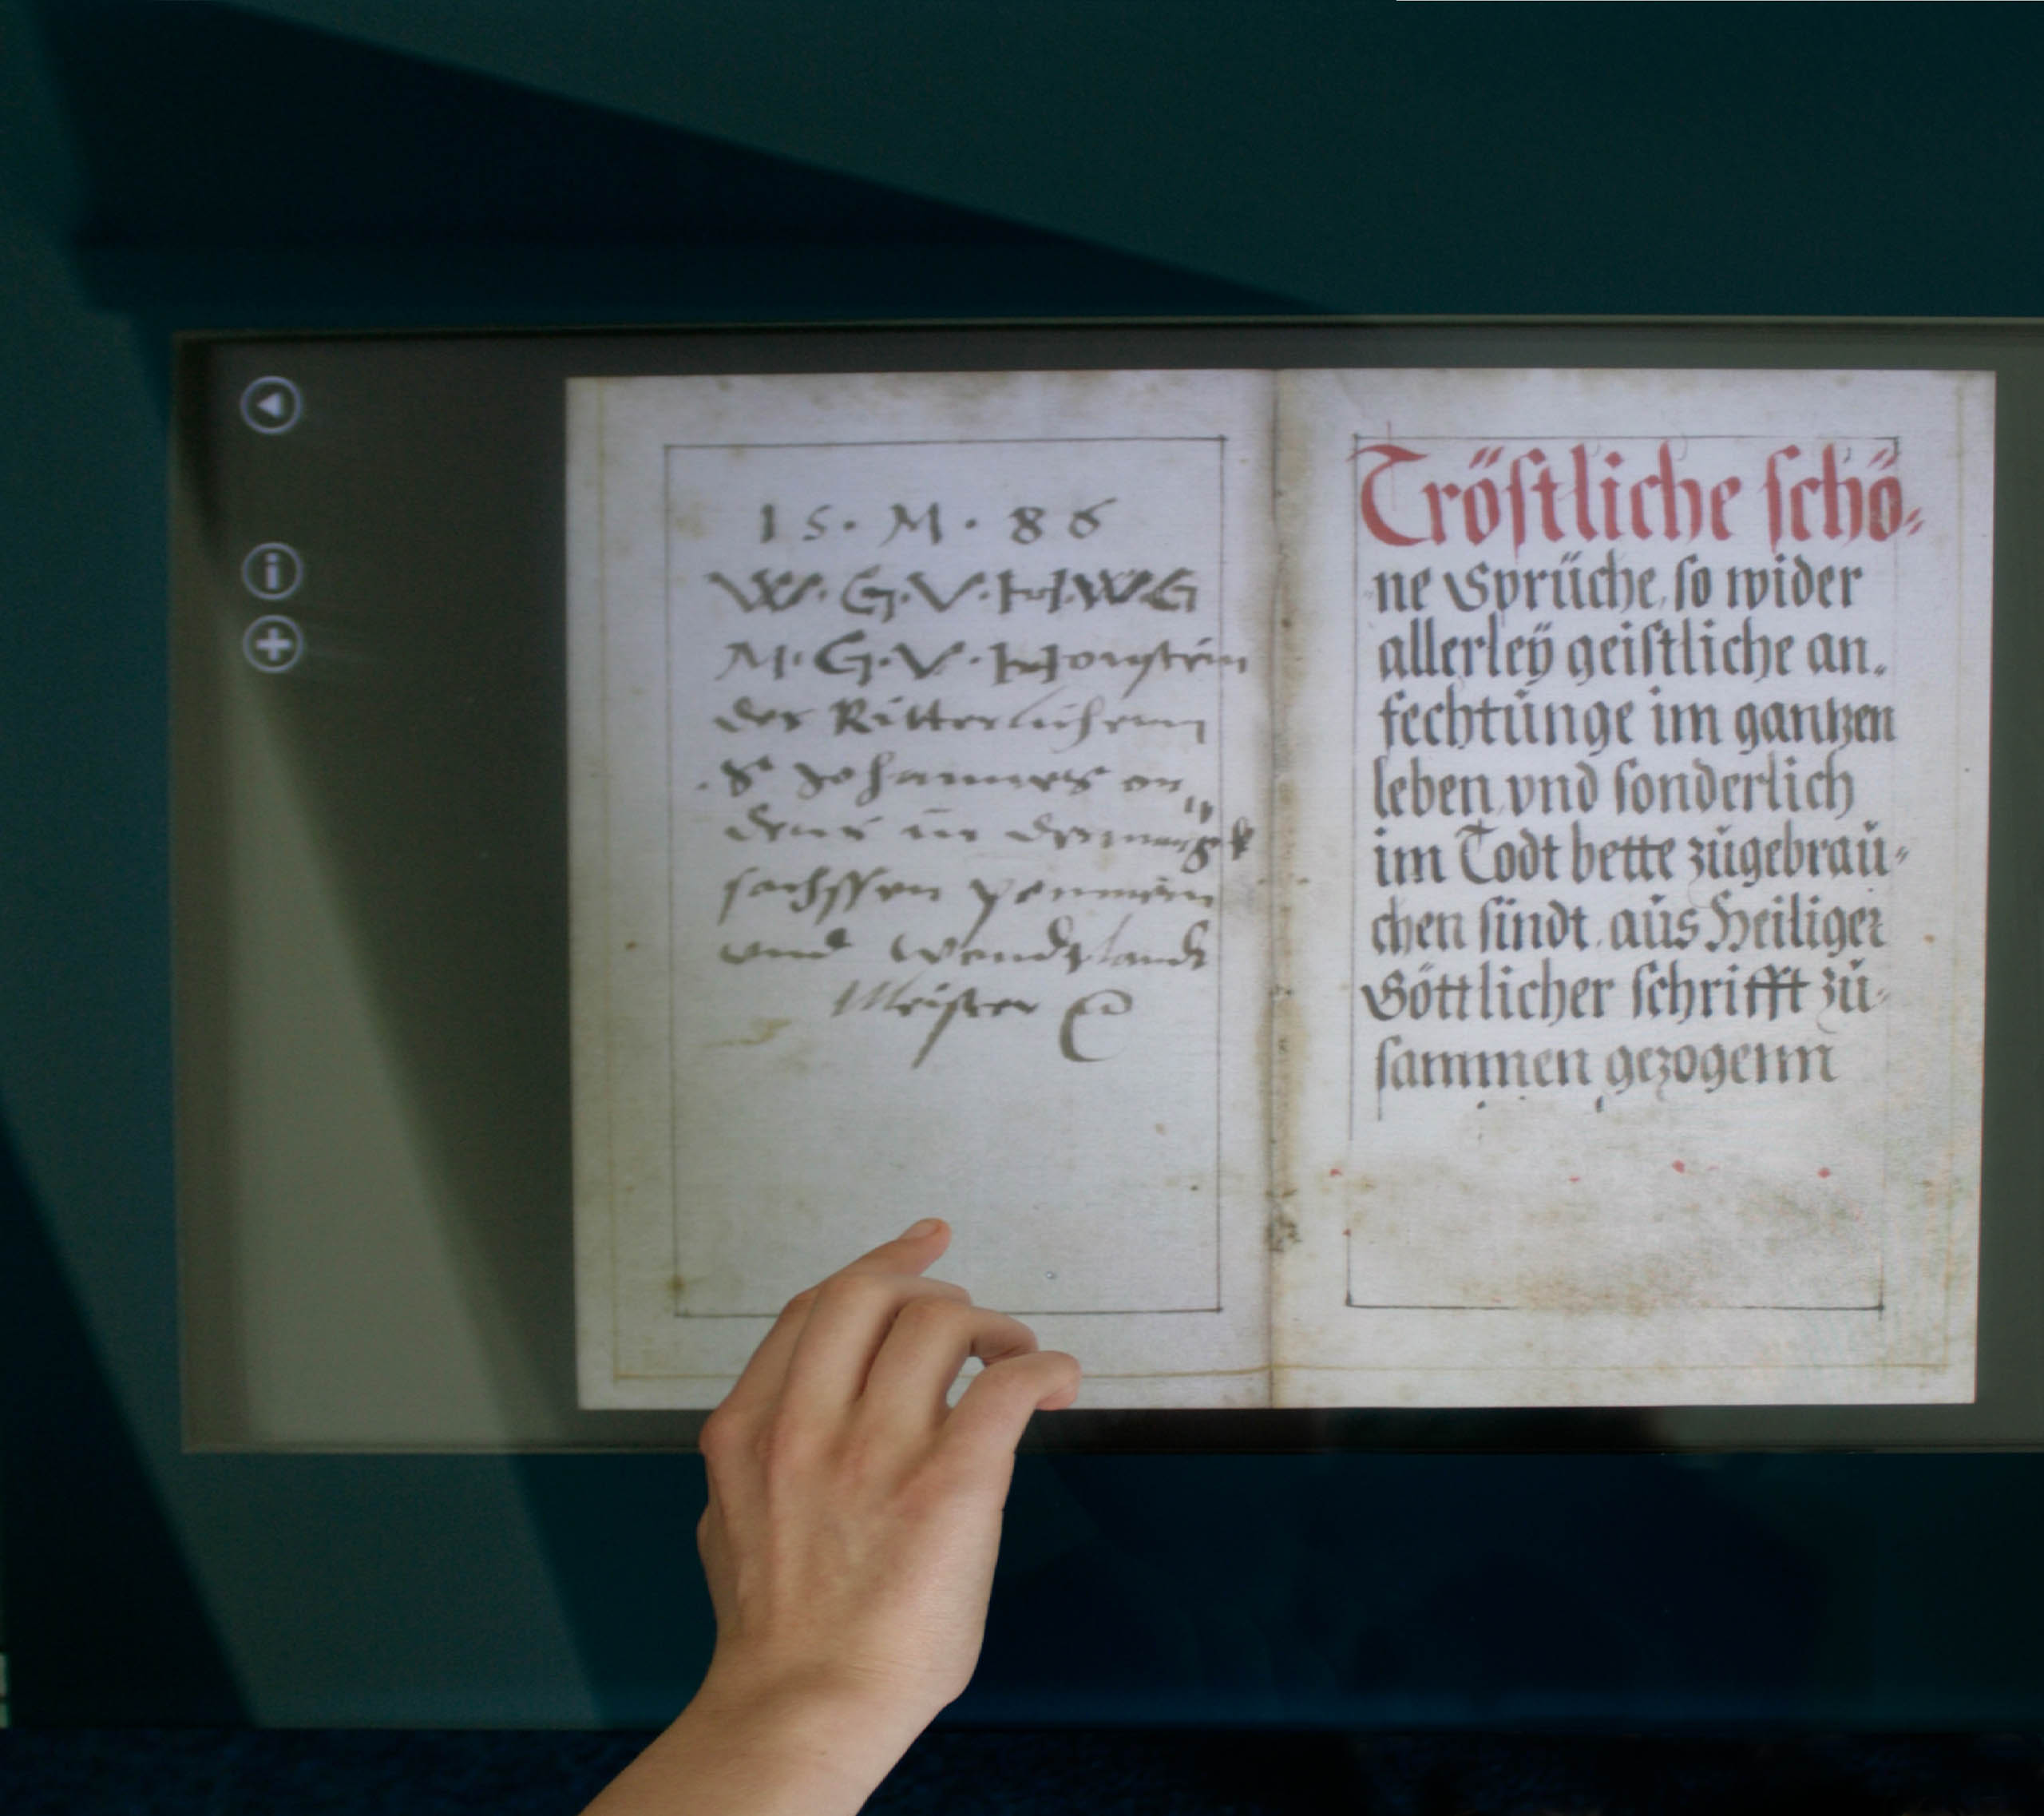 15 · M · 86
W · G · V · H · W · G
M · G · V · Honstein
des Ritterlichenn
S Johannes or
dens in der
sachssen pommern
vnd wendtlandt
Meister
Tröstliche schö⸗
ne Sprüche, so wider
allerleÿ geistliche an⸗
fechtŭnge im gantzen
leben vnd sonderlich
im Todt bette zŭgebraŭ⸗
chen sindt, aŭs Heiliger
Göttlicher schrifft zŭ⸗
sammen gezogenn